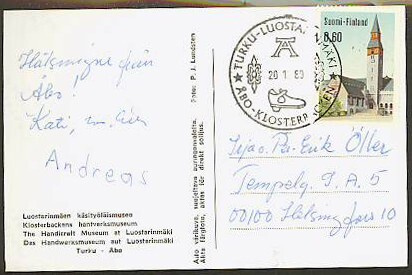 Hälsningar från
Åbo!
Kati,
Andreas
Luostarinmäen käsityöläismuseo
Klosterbackens hantverksmuseum
The Handicraft Museum at Luostarinmäki
Das Handwerksmuseum auf Luostarinmäki
Turku - Åbo
Aito värikuva, suojattava auringonvalolta.
Äkta färgfoto, aktas för direkt solljus.
Foto: P. J. Lundsten
TURKU-LUOSTARINMÄKI
20 1 80
ÅBO-KLOSTERBACKEN
Suomi-Finland
0,60
Per-Erik Öller
Tempelg. 3 A 5
00100 Helsingfors 10